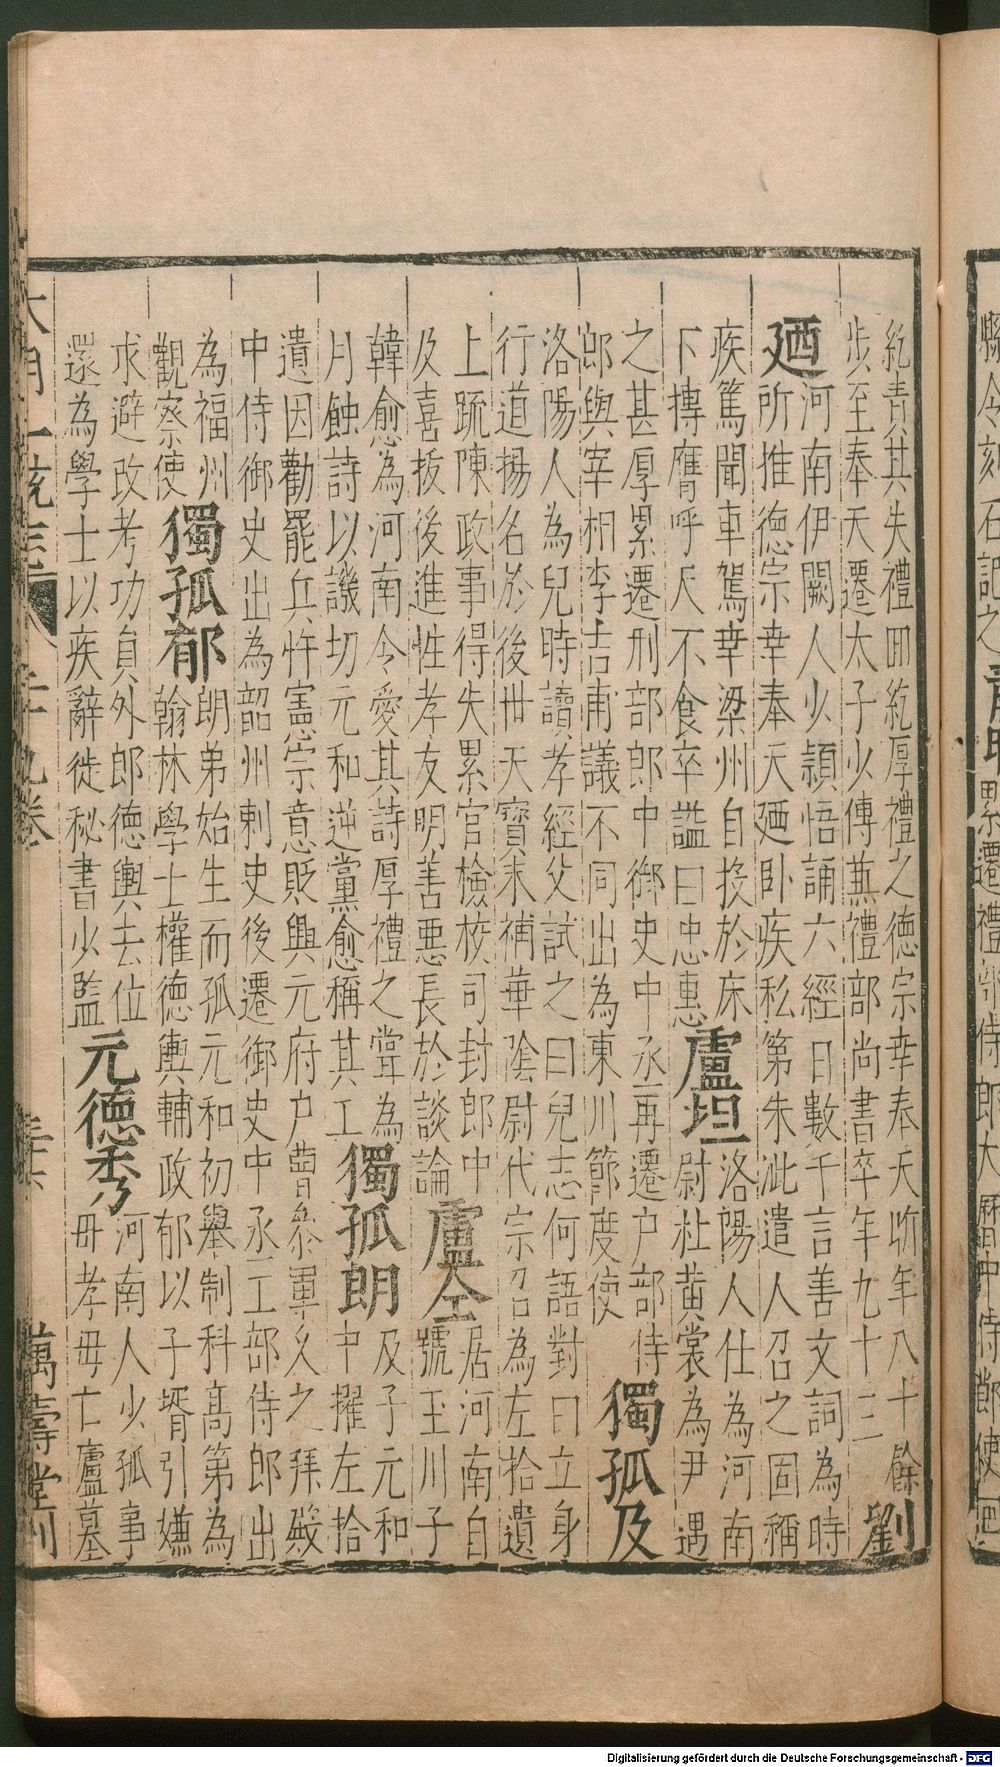 令刻石記之
累遷禮部侍郎大曆中侍郎使囬
紇責其失禮囬紇厚禮之德宗幸奉天昕年八十餘
歩至奉天遷太子少傳蕪禮部尚書卒年九十三
劉廼
河南伊闕人少頴悟誦六經日數千言善文詞為時
所推德宗幸奉天廼卧疾私第朱泚遣人召之固稱
疾篤聞車駕幸梁州自投於床
下摶膺呼天不食卒諡曰忠惠
盧坦
洛陽人仕為河南
尉杜黄裳為尹遇
之甚厚累遷刑部郎中御史中丞再遷户部侍
郎與宰相李吉甫議不同出為東川節度使
獨孤及
洛陽人為兒時讀孝經父試之曰兒志何語對曰立身
行道揚名於後世天寳末補華隂尉代宗召為左拾遺
上䟽陳政事得失累官檢校司封郎中
及喜拔後進性孝友明善悪長於談論
盧仝
居河南自
號玉川子
韓愈為河南令愛其詩厚禮之甞為
月蝕詩以譏切元和逆黨愈稱其工
獨孤朗
及子元和
中擢左拾
遺因勸罷兵忤憲宗意貶興元府户曹叅軍乆之拜殿
中侍御史出為韶州刺史後遷御史中丞工部侍郎出
為福州
觀察使
獨孤郁
朗弟始生而孤元和初舉制科高第為
翰林學士權德輿輔政郁以子壻引嫌
求避改考功員外郎德輿去位
還為學士以疾辭徙秘書少監
元德秀
河南人少孤事
母孝母亡廬墓
大明一統志 二十九卷 三十六 萬壽堂刊
Digitalisierung gefördert durch die Deutsche Forschungsgemeinschaft - DFG